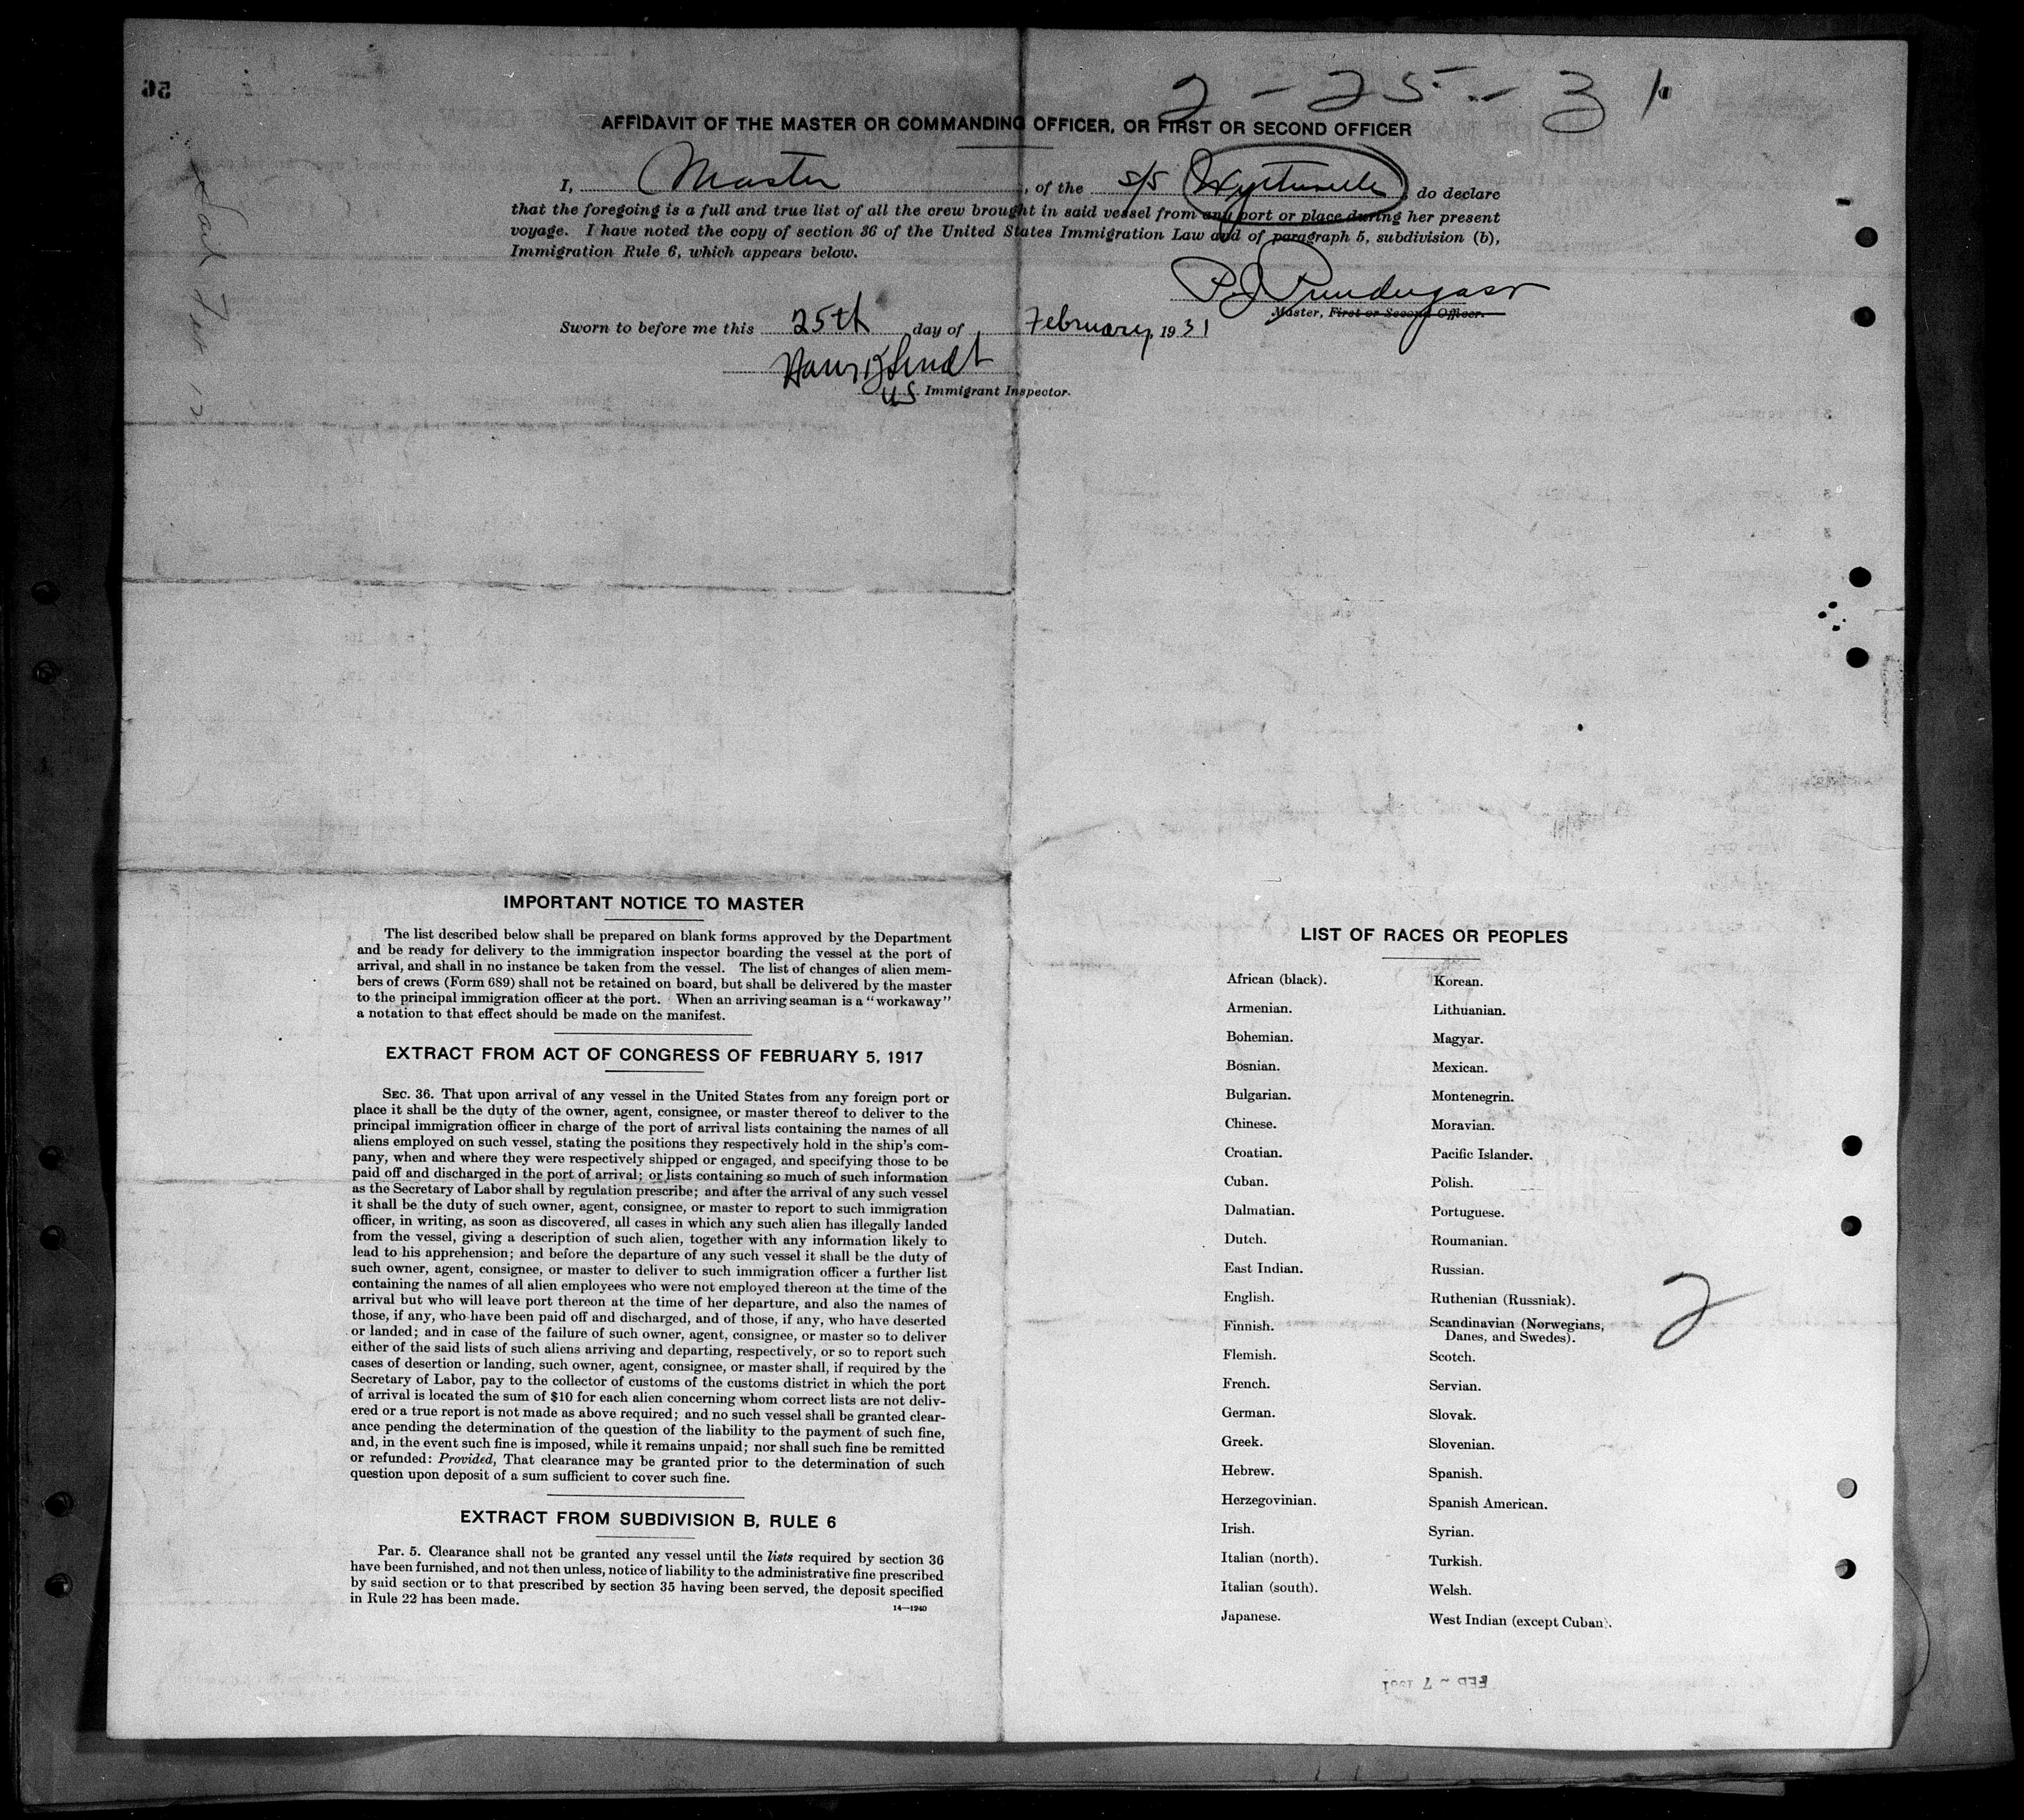 2-25-31
AFFIDAVIT OF THE MASTER OR COMMANDING OFFICER, OR FIRST OR SECOND OFFICER
I, Master, of the S/S do declare
that the foregoing is a full and true list of all the crew brought in said vessel from any port or place during her present
voyage. I have noted the copy of section 36 of the United States Immigration Law and of paragraph 5, subdivision (b),
Immigration Rule 6, which appears below.
P.J. Prendergast
Master, First or Second Officer.
Sworn to before me this 25th day of February, 1931
US Immigrant Inspector.
IMPORTANT NOTICE TO MASTER
The list described below shall be prepared on blank forms approved by the Department
and be ready for delivery to the immigration inspector boarding the vessel at the port of
arrival, and shall in no instance be taken from the vessel. The list of changes of alien mem-
bers of crews (Form 689) shall not be retained on board, but shall be delivered by the master
to the principal immigration officer at the port. When an arriving seaman is a "workaway"
a notation to that effect should be made on the manifest.
EXTRACT FROM ACT OF CONGRESS OF FEBRUARY 5, 1917
SEC. 36. That upon arrival of any vessel in the United States from any foreign port or
place it shall be the duty of the owner, agent, consignee, or master thereof to deliver to the
principal immigration officer in charge of the port of arrival lists containing the names of all
aliens employed on such vessel, stating the positions they respectively hold in the ship's com-
pany, when and where they were respectively shipped or engaged, and specifying those to be
paid off and discharged in the port of arrival; or lists containing so much of such information
as the Secretary of Labor shall by regulation prescribe; and after the arrival of any such vessel
it shall be the duty of such owner, agent, consignee, or master to report to such immigration
officer, in writing, as soon as discovered, all cases in which any such alien has illegally landed
from the vessel, giving a description of such alien, together with any information likely to
lead to his apprehension; and before the departure of any such vessel it shall be the duty of
such owner, agent, consignee, or master to deliver to such immigration officer a further list
containing the names of all alien employees who were not employed thereon at the time of the
arrival but who will leave port thereon at the time of her departure, and also the names of
those, if any, who have been paid off and discharged, and of those, if any, who have deserted
or landed; and in case of the failure of such owner, agent, consignee, or master so to deliver
either of the said lists of such aliens arriving and departing, respectively, or so to report such
cases of desertion or landing, such owner, agent, consignee, or master shall, if required by the
Secretary of Labor, pay to the collector of customs of the customs district in which the port
of arrival is located the sum of $10 for each alien concerning whom correct lists are not deliv-
ered or a true report is not made as above required; and no such vessel shall be granted clear-
ance pending the determination of the question of the liability to the payment of such fine,
and, in the event such fine is imposed, while it remains unpaid; nor shall such fine be remitted
or refunded: Provided, That clearance may be granted prior to the determination of such
question upon deposit of a sum sufficient to cover such fine.
EXTRACT FROM SUBDIVISION B, RULE 6
Par. 5. Clearance shall not be granted any vessel until the lists required by section 36
have been furnished, and not then unless, notice of liability to the administrative fine prescribed
by said section or to that prescribed by section 35 having been served, the deposit specified
in Rule 22 has been made.
14—1240
LIST OF RACES OR PEOPLES
African (black).
Armenian.
Bohemian.
Bosnian.
Bulgarian.
Chinese.
Croatian.
Cuban.
Dalmatian.
Dutch.
East Indian.
English.
Finnish.
Flemish.
French.
German.
Greek.
Hebrew.
Herzegovinian.
Irish.
Italian (north).
Italian (south).
Japanese.
Korean.
Lithuanian.
Magyar.
Mexican.
Montenegrin.
Moravian.
Pacific Islander.
Polish.
Portuguese.
Roumanian.
Russian.
Ruthenian (Russniak).
Scandinavian (Norwegians,
Danes, and Swedes).
Scotch.
Servian.
Slovak.
Slovenian.
Spanish.
Spanish American.
Syrian.
Turkish.
Welsh.
West Indian (except Cuban).
2